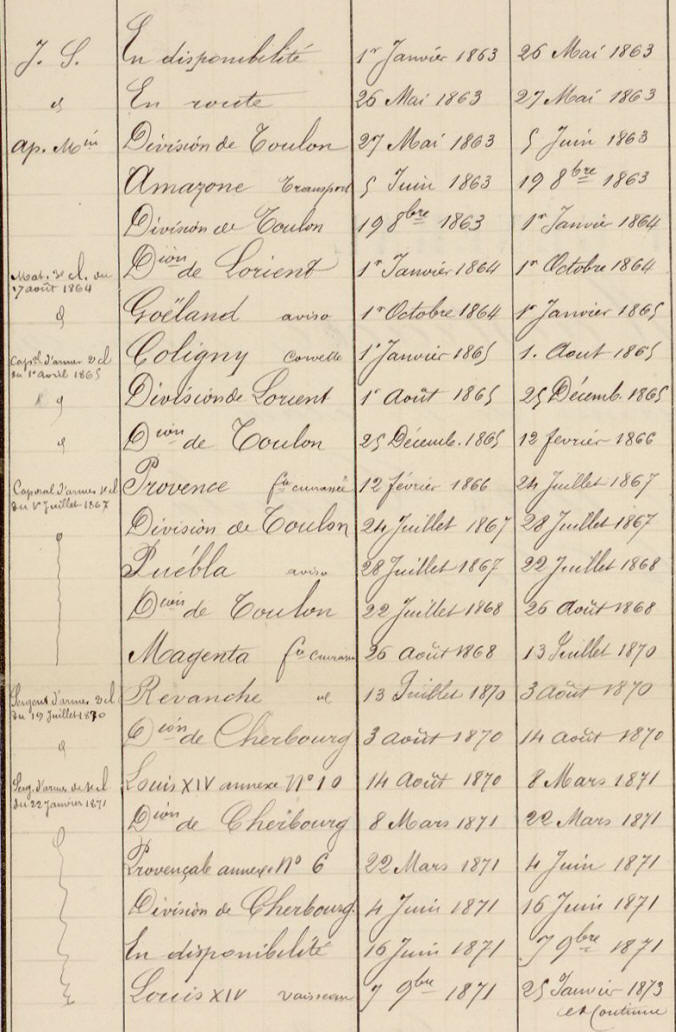 J. S. En disponibilité 1r Janvier 1863 26 Mai 1863
d En route 26 Mai 1863 27 Mai 1863
ap. Min Division de Toulon 27 Mai 1863 5 Juin 1863
Amazone Transport 5 Juin 1863 19 8bre 1863
Division de Toulon 19 8bre 1863 1r Janvier 1864
Mat. 3e cl. du
17 août 1864
Dion de Lorient 1r Janvier 1864 1r Octobre 1864
d Goëland aviso 1r Octobre 1864 1r Janvier 1865
Capal d'armes 2 cl
du 1r avril 1865
Coligny Corvette 1r Janvier 1865 1. Aout 1865
d Division de Lorient 1r Août 1865 25 Décemb. 1865
d Dion de Toulon 25 Décemb. 1865 12 fevrier 1866
Caporal d'armes 1e cl
du 1r Juillet 1867
Provence fte cuirassée 12 février 1866 24 Juillet 1867
Division de Toulon 24 Juillet 1867 28 Juillet 1867
Puébla aviso 28 Juillet 1867 22 Juillet 1868
Dion de Toulon 22 Juillet 1868 26 Août 1868
Magenta fte 26 août 1868 13 Juillet 1870
Sergent d'armes 2 cl
du 19 Juillet 1870
Revanche d 13 Juillet 1870 3 août 1870
d Dion de Cherbourg 3 août 1870 14 août 1870
Serg. d'armes de 1e cl
du 22 Janvier 1871
Louis XIV annexe No 10 14 Août 1870 8 Mars 1871
Dion de Cherbourg 8 Mars 1871 22 Mars 1871
Provençale annexe No 6 22 Mars 1871 4 Juin 1871
Division de Cherbourg. 4 Juin 1871 16 Juin 1871
En disponibilité 16 Juin 1871 7 9bre 1871
Louis XIV vaisseau 7 9bre 1871 25 Janvier 1873
et Continue